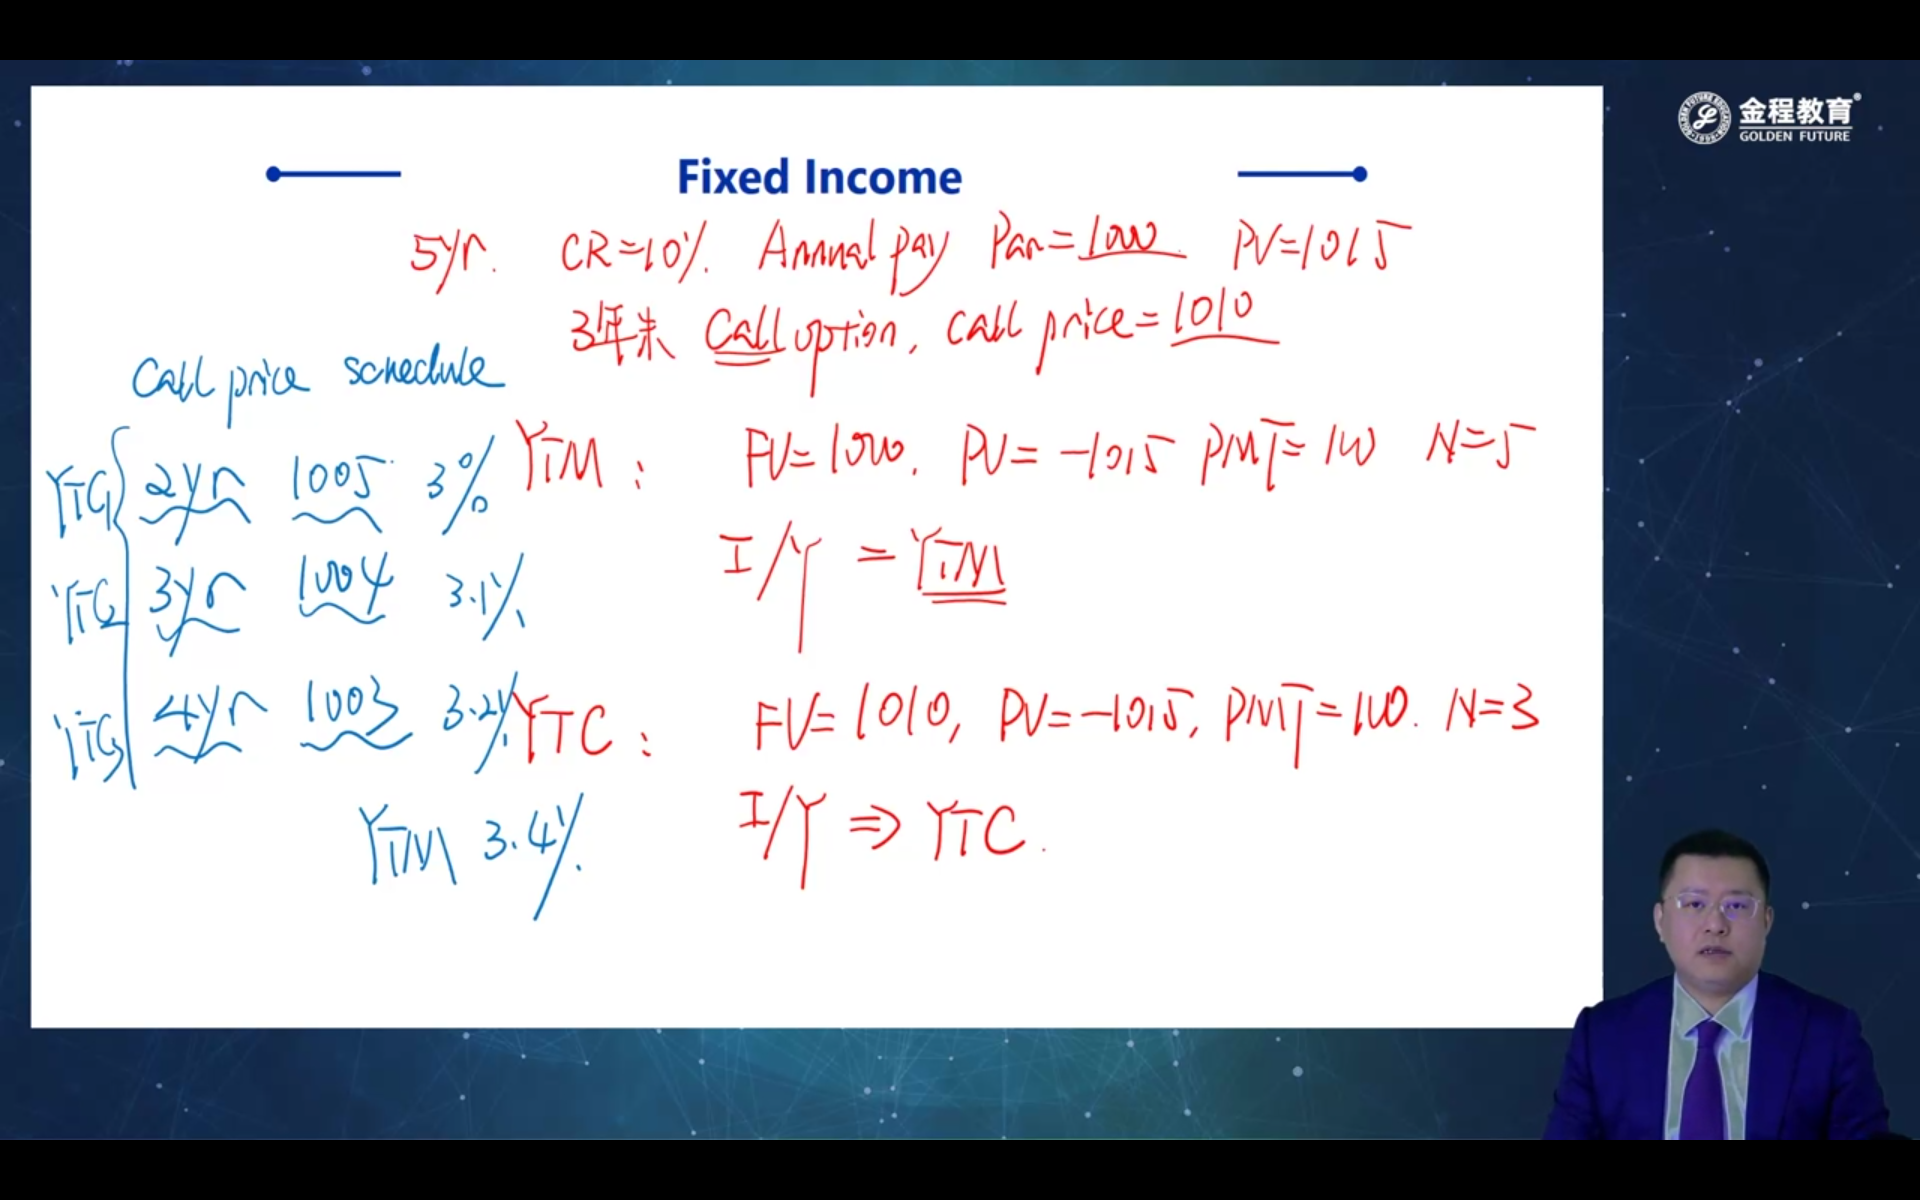 金程教育®
GOLDEN FUTURE
Fixed Income
5yr. CR=10%. Annual pay Par=1000. PV=1015
3年末 Call option, call price=1010
Call price schedule
YTC1 2yr 1005 3%
YTC2 3yr 1004 3.1%
YTC3 4yr 1003 3.2%
YTM 3.4%
YTM: FV=1000, PV=-1015 PMT=100 N=5
I/Y = YTM
YTC: FV=1010, PV=-1015, PMT=100. N=3
I/Y ⇒ YTC.